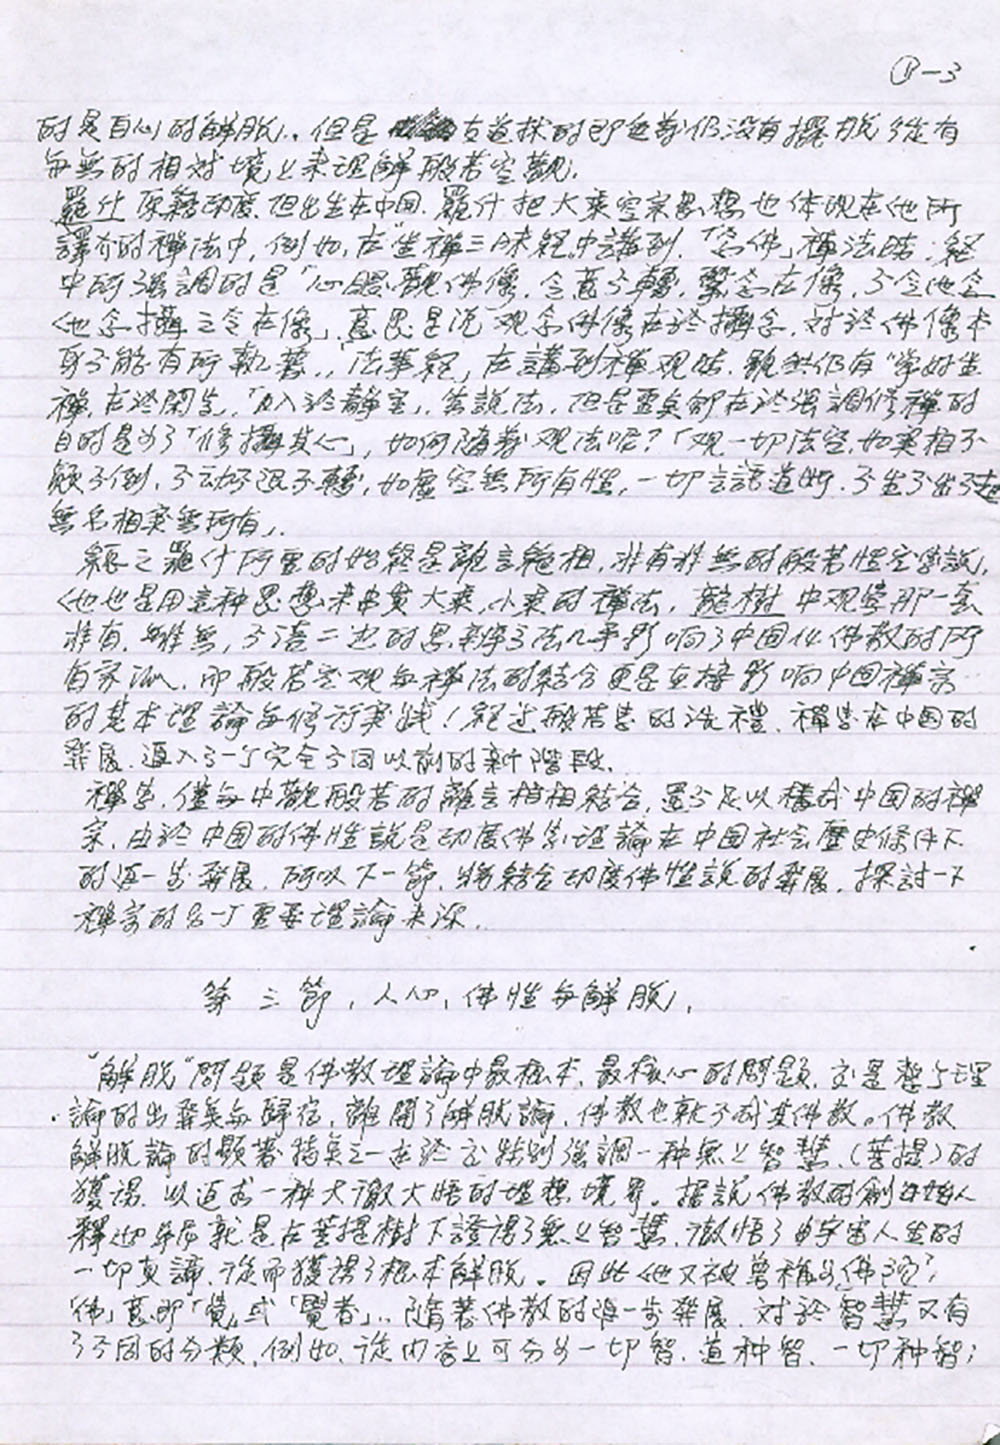 ①-3
的是自心的解脫。但是支道林的即色義仍沒有擺脫從有
與無的相對境上來理解般若空觀。
羅什原籍印度,但出生在中国.羅什把大乘空宗思想也体现在他所
譯介的禪法中,例如,在"坐禪三昧經"中講到「念佛」禪法時:經
中所强調的是「心眼觀佛像,令意不轉,繫念在像,不令他念
他念攝之令在像」,意思是说观念佛像在於攝念,对於佛像本
身不能有所執著,「法華經」在講到禪观時,雖然仍有"常好坐
禪,在於閑處,「入於靜室」等說法,但是重奌卻在於强調修禪的
目的是为了「修攝其心」,如何隨著观法呢?「观一切法空,如實相不
顛不倒,不动不退不轉,如虛空無所有性,一切言語道断,不生不出不起
無名相実無所有」.
總之羅什所重的始終是離言絕相,非有非無的般若性空學說,
他也是用这种思想来串貫大乘,小乘的禪法,龍樹中观學那一套
非有,非無,不落二边的思辨方法几乎影响了中国化佛教的所
有宗派,而般若空观与禪法的結合更是直接影响中国禪宗
的基本理論与修行实践!經过般若學的洗禮,禪學在中国的
發展,進入了一个完全不同以前的新階段.
禪學,僅与中觀般若的離言相結合,還不足以構成中国的禪
宗,由於中国的佛性說是印度佛學理論在中国社会歷史條件下
的進一步發展,所以下一節,将結合印度佛性說的發展,探討一下
禪宗的另一个重要理論來源.
第三節,人心,佛性与解脫,
"解脫"問題是佛教理論中最根本,最核心的問題,它是整个理
論的出發奌与歸宿,離開了解脫論,佛教也就不成其佛教。佛教
解脫論的顯著特奌之一在於它特别强調一种無上智慧,(菩提)的
獲得,以追求一种大徹大悟的理想境界。据說佛教的創始人
釋迦牟尼就是在菩提樹下證得了無上智慧,徹悟了宇宙人生的
一切真諦,從而獲得了根本解脫。因此他又被尊稱为"佛陀";
「佛」意即「覺」或「覺者」.隨著佛教的進一步發展,对於智慧又有
了不同的分類,例如,從内容上可分为一切智,道种智,一切种智;